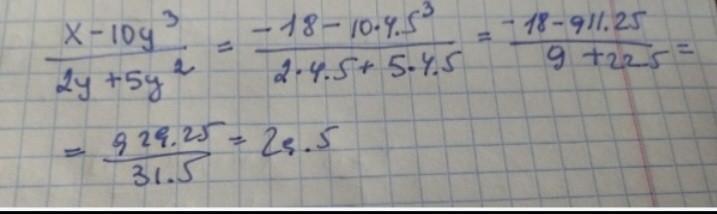 (x-10y³)/(2y+5y²) = (-18-10·4.5³)/(2·4.5+5·4.5) = (-18-911.25)/(9+22.5) =
= 929.25/31.5 = 29.5